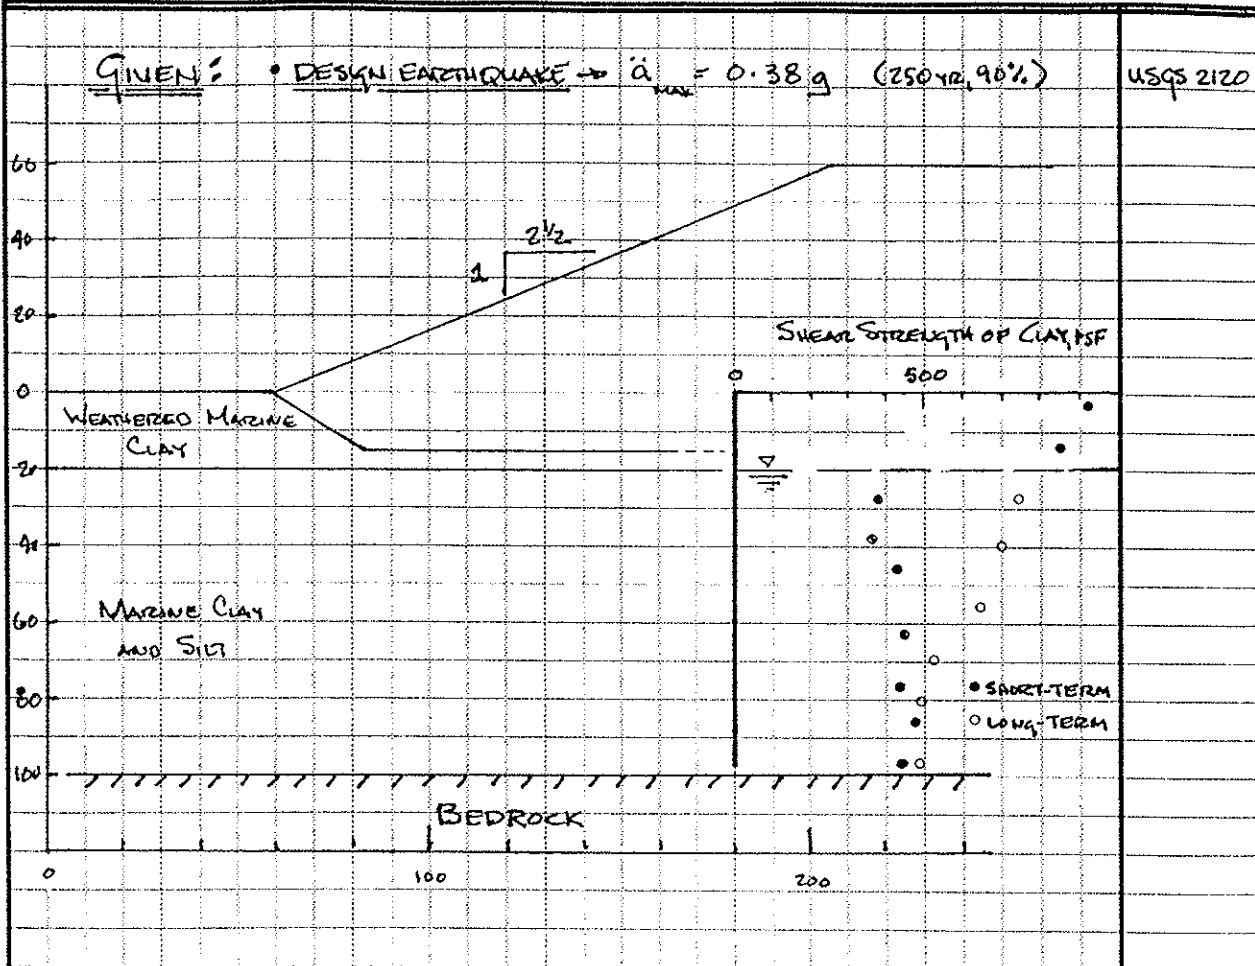 GIVEN: • DESIGN EARTHQUAKE → ä max = 0.38 g (250 YR, 90%)
USGS 2120
60
40
2 1/2
1
20
SHEAR STRENGTH OF CLAY, PSF
0
0 500
WEATHERED MARINE
CLAY
20
40
MARINE CLAY
60
AND SILT
80
• SHORT-TERM
○ LONG-TERM
100
BEDROCK
0 100 200